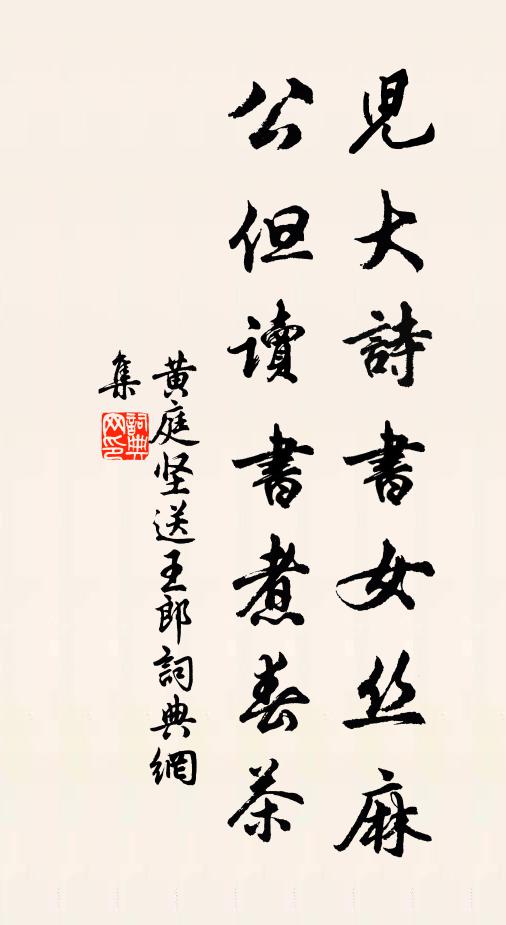 兒大詩書女丝麻
公但讀書煮春茶
黄庭坚送王郎詞典網
集
詞典
网印